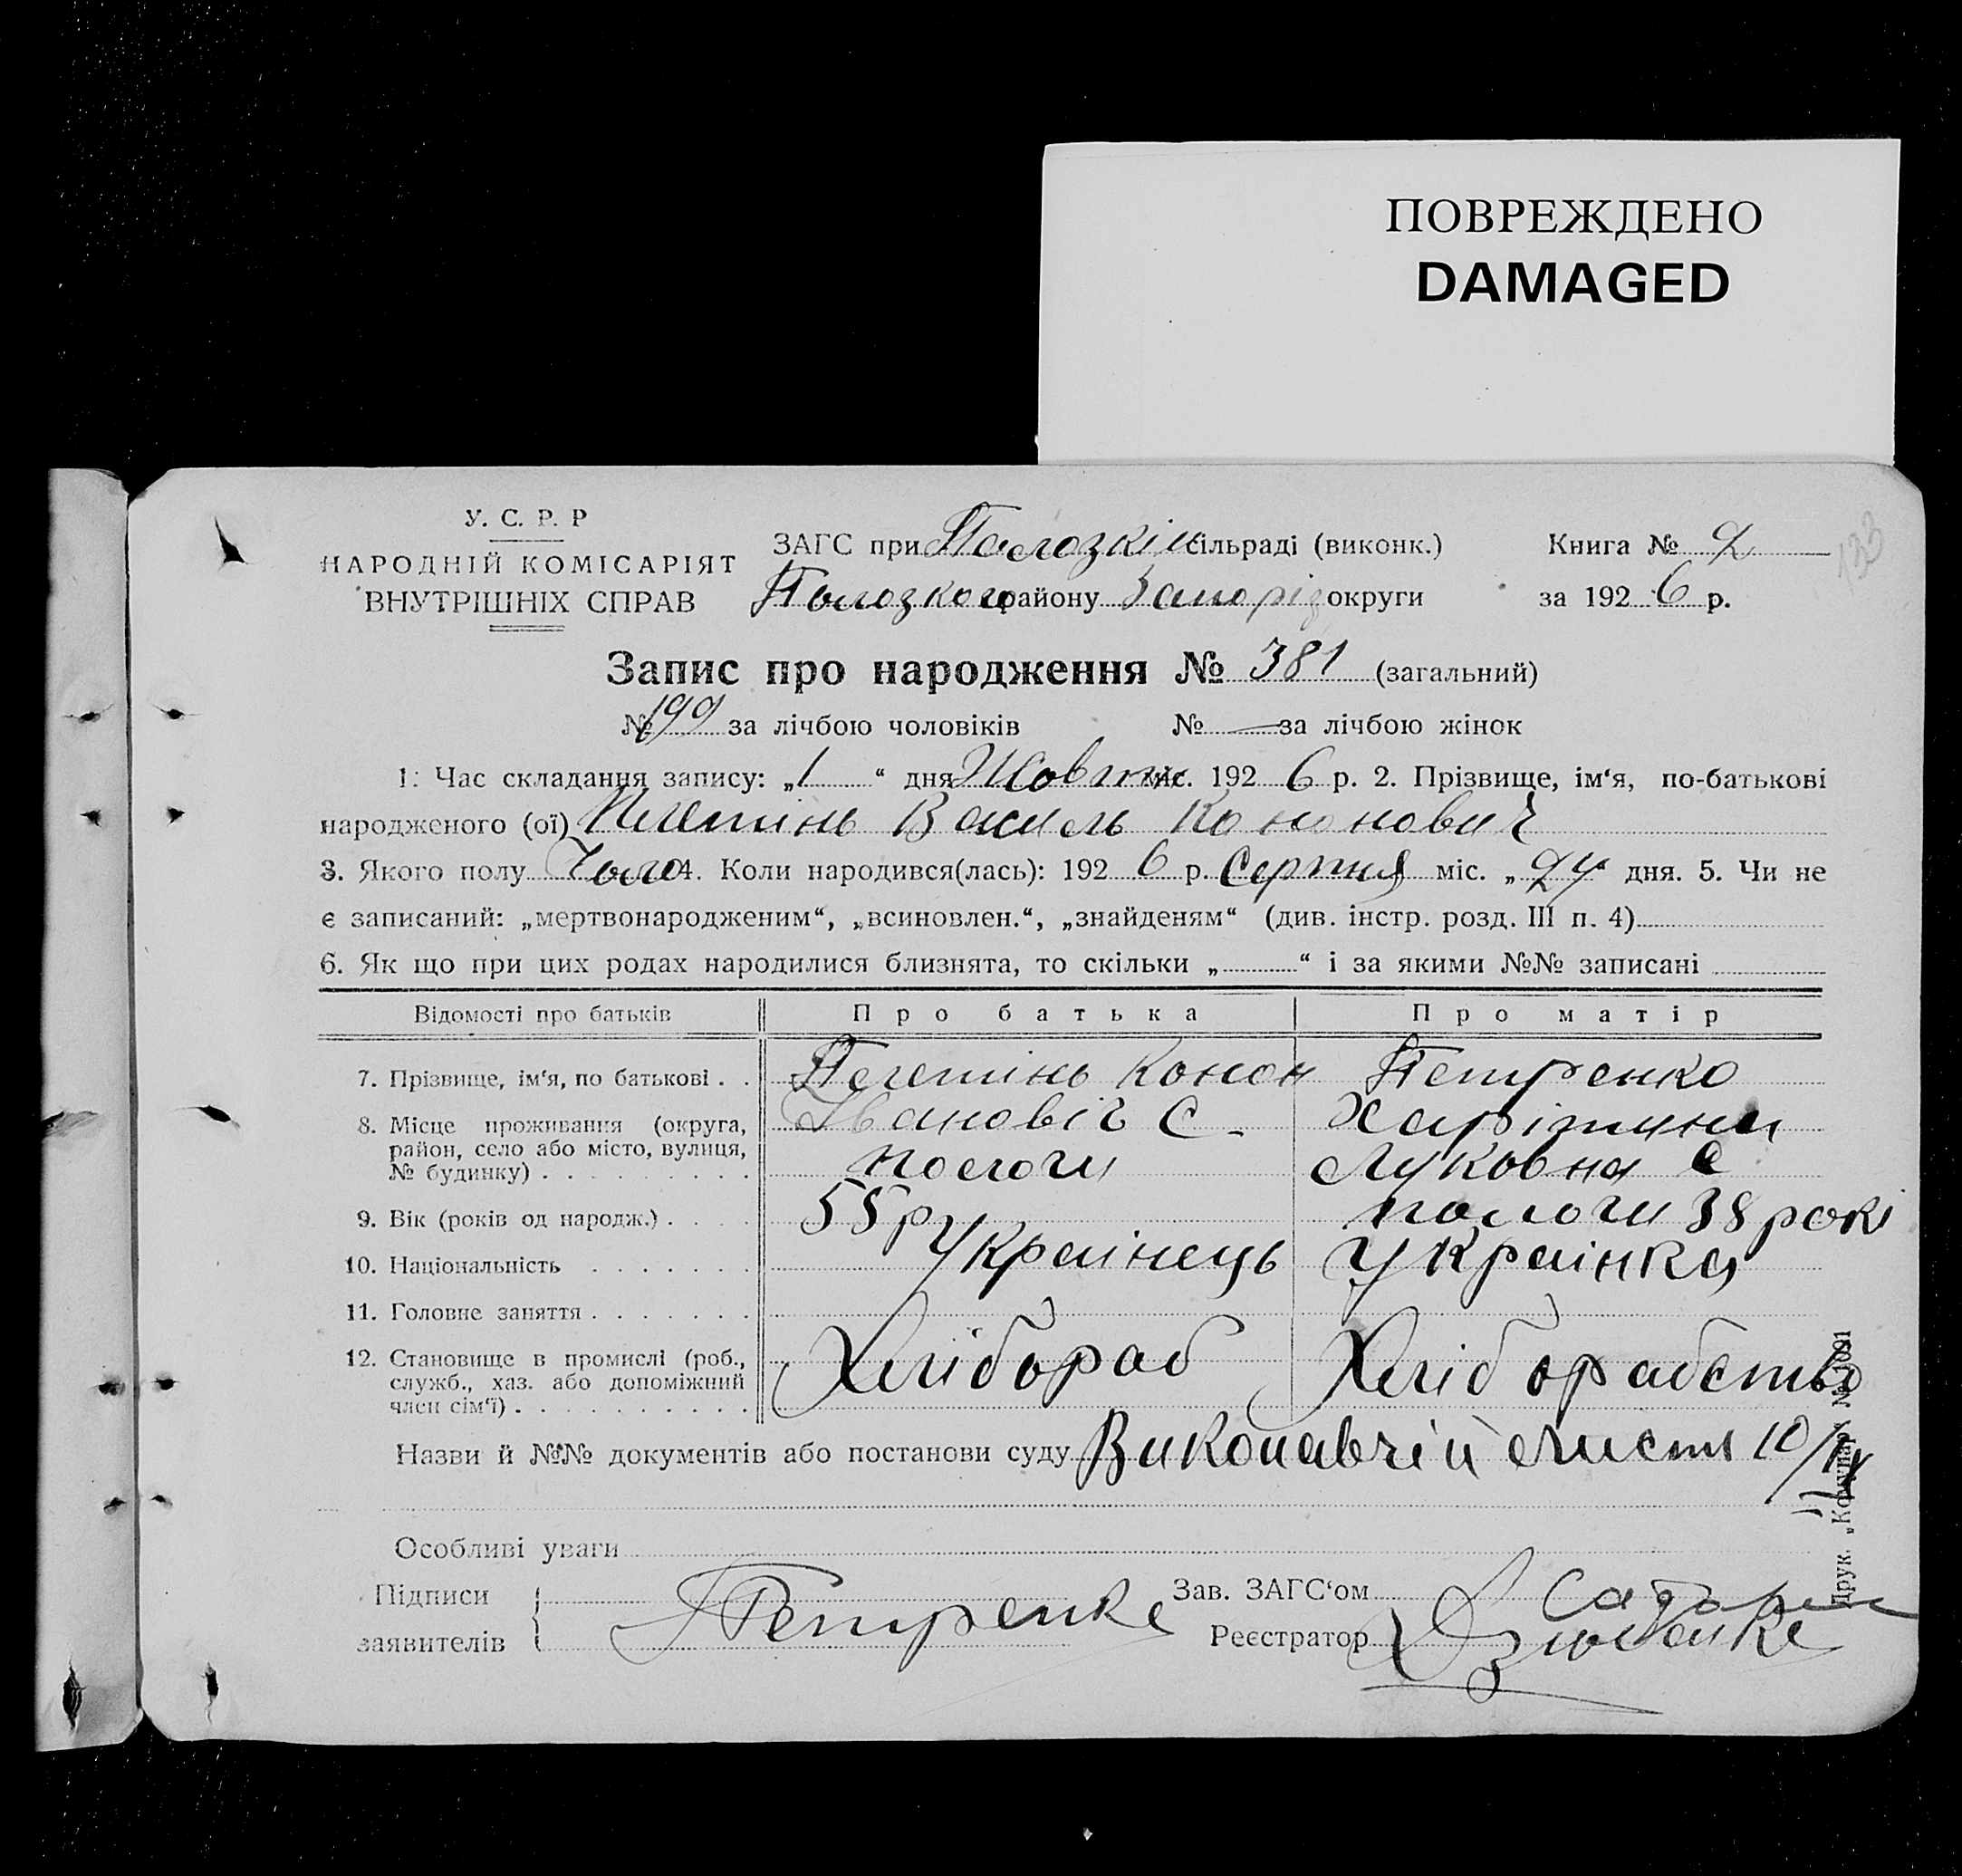 ПОВРЕЖДЕНО
DAMAGED
133
У. С. Р. Р
НАРОДНІЙ КОМІСАРІЯТ
ВНУТРІШНІХ СПРАВ
ЗАГС при Пологзкій сільраді (виконк.)
Пологзкого району Запоріз округи
Книга № 2
за 192 6 р.
Запис про народження № 381 (загальний)
№ 199 за лічбою чоловіків № — за лічбою жінок
1. Час складання запису: „1“ дня Жовтня міс. 192 6 р. 2. Прізвище, ім‘я, по-батькові
народженого (ої) Василь Кононович
3. Якого полу Чоло 4. Коли народився(лась): 192 6 р. Серпня міс. „24“ дня. 5. Чи не
є записаний: „мертвонародженим“, „всиновлен.“, „знайденям“ (див. інстр. розд. III п. 4)
6. Як що при цих родах народилися близнята, то скільки „ “ і за якими №№ записані
Відомості про батьків Про батька Про матір
7. Прізвище, ім‘я, по батькові . . Конон Петренко
8. Місце проживання (округа, район, село або місто, вулиця, № будинку) . Івановіч С. Пологи Харітина Луковна С
9. Вік (років од народж.) . 55 р Пологи 38 рокі
10. Національність . Украінець Украінка
11. Головне заняття .
12. Становище в промислі (роб., служб., хаз. або допоміжний член сім‘ї) . Хлібороб Хліборобство
Назви й №№ документів або постанови суду Виконавчій лист 10/IX
Особливі уваги
Підписи
заявителів Петренко
Зав. ЗАГС‘ом
Реєстратор Дзюбенко
Друк. „Комунар“ №